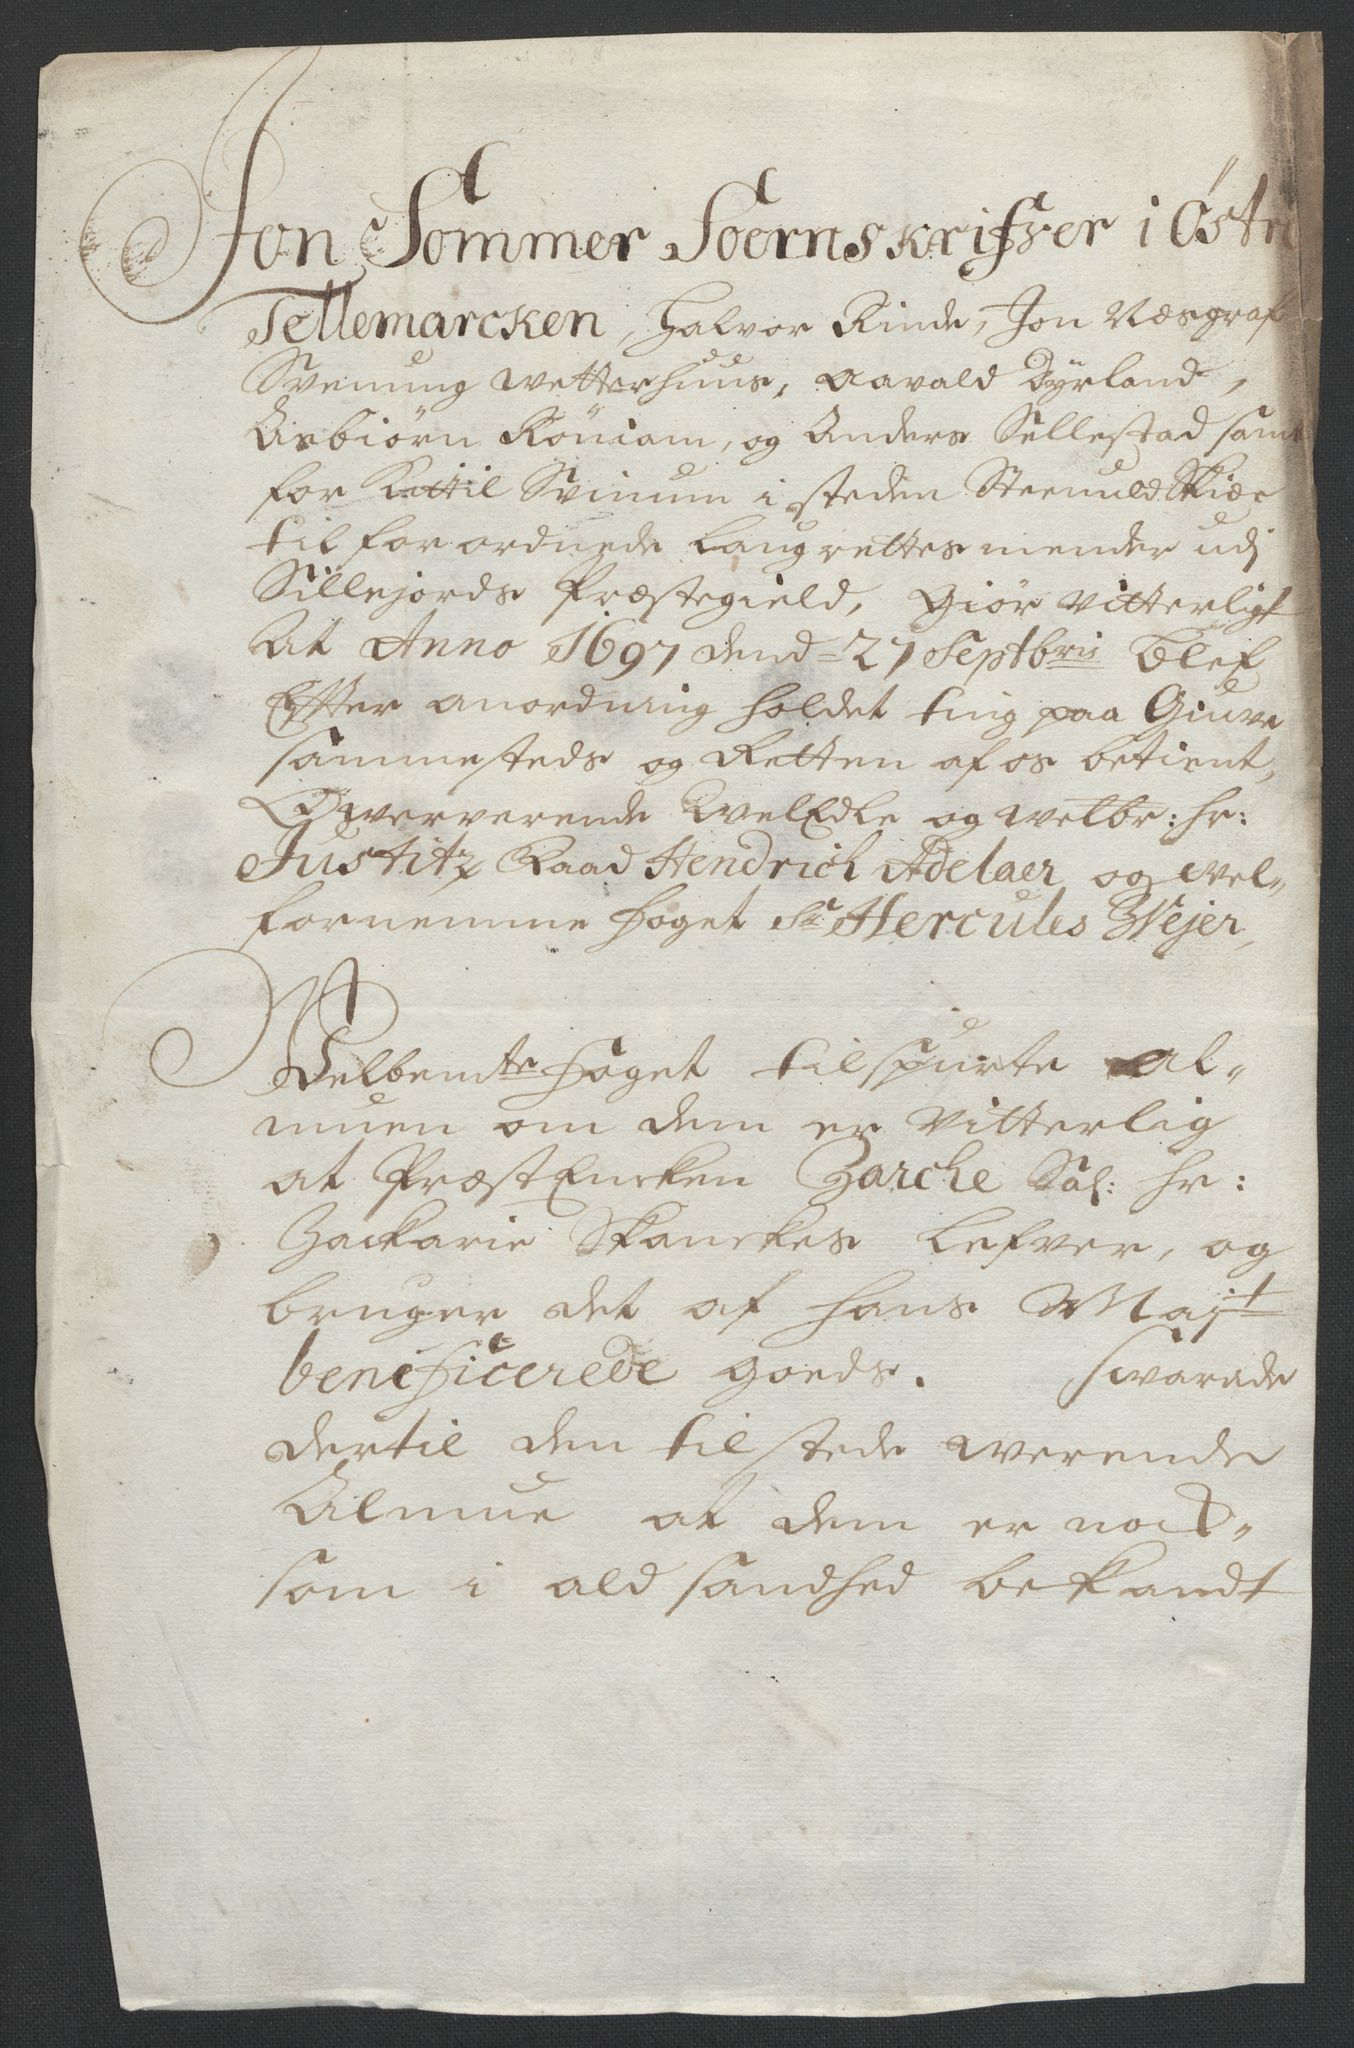 Jon Sommer Soernskrifver i Østre
Tellemarcken, Halvor Rinde, Jon Næsgraf
Svenung Wetterhuus, Aavald Dÿrland,
Asbiørn Röniom, og Anders Sellestad samt
for Kettil Svinum i steden Steenuld Skiæ
til forordnede Laugrettesmender udj
Sillejords Præstegield, Giør Vitterligt
At Anno 1697 dend 27 Septbris blef
Effter anordning holdet ting paa Giuve
sammesteds og Retten af os betient,
Owerverende WelEdle og welbr: hr:
Justitz Raad Hendrich Adelaer og wel-
fornemme foget Sr Hercules Wejer,
Velbemte foget tilspurte Al-
muen om dem er Vitterlig
at PræstEncken Zarche Sal: hr:
Zackarie Skanckes Lefver, og
bruger det af hans Majt
beneficerede goeds. Swarede
dertil den tilstede werende
Almue at dem er nock-
som i ald sandhed bekandt